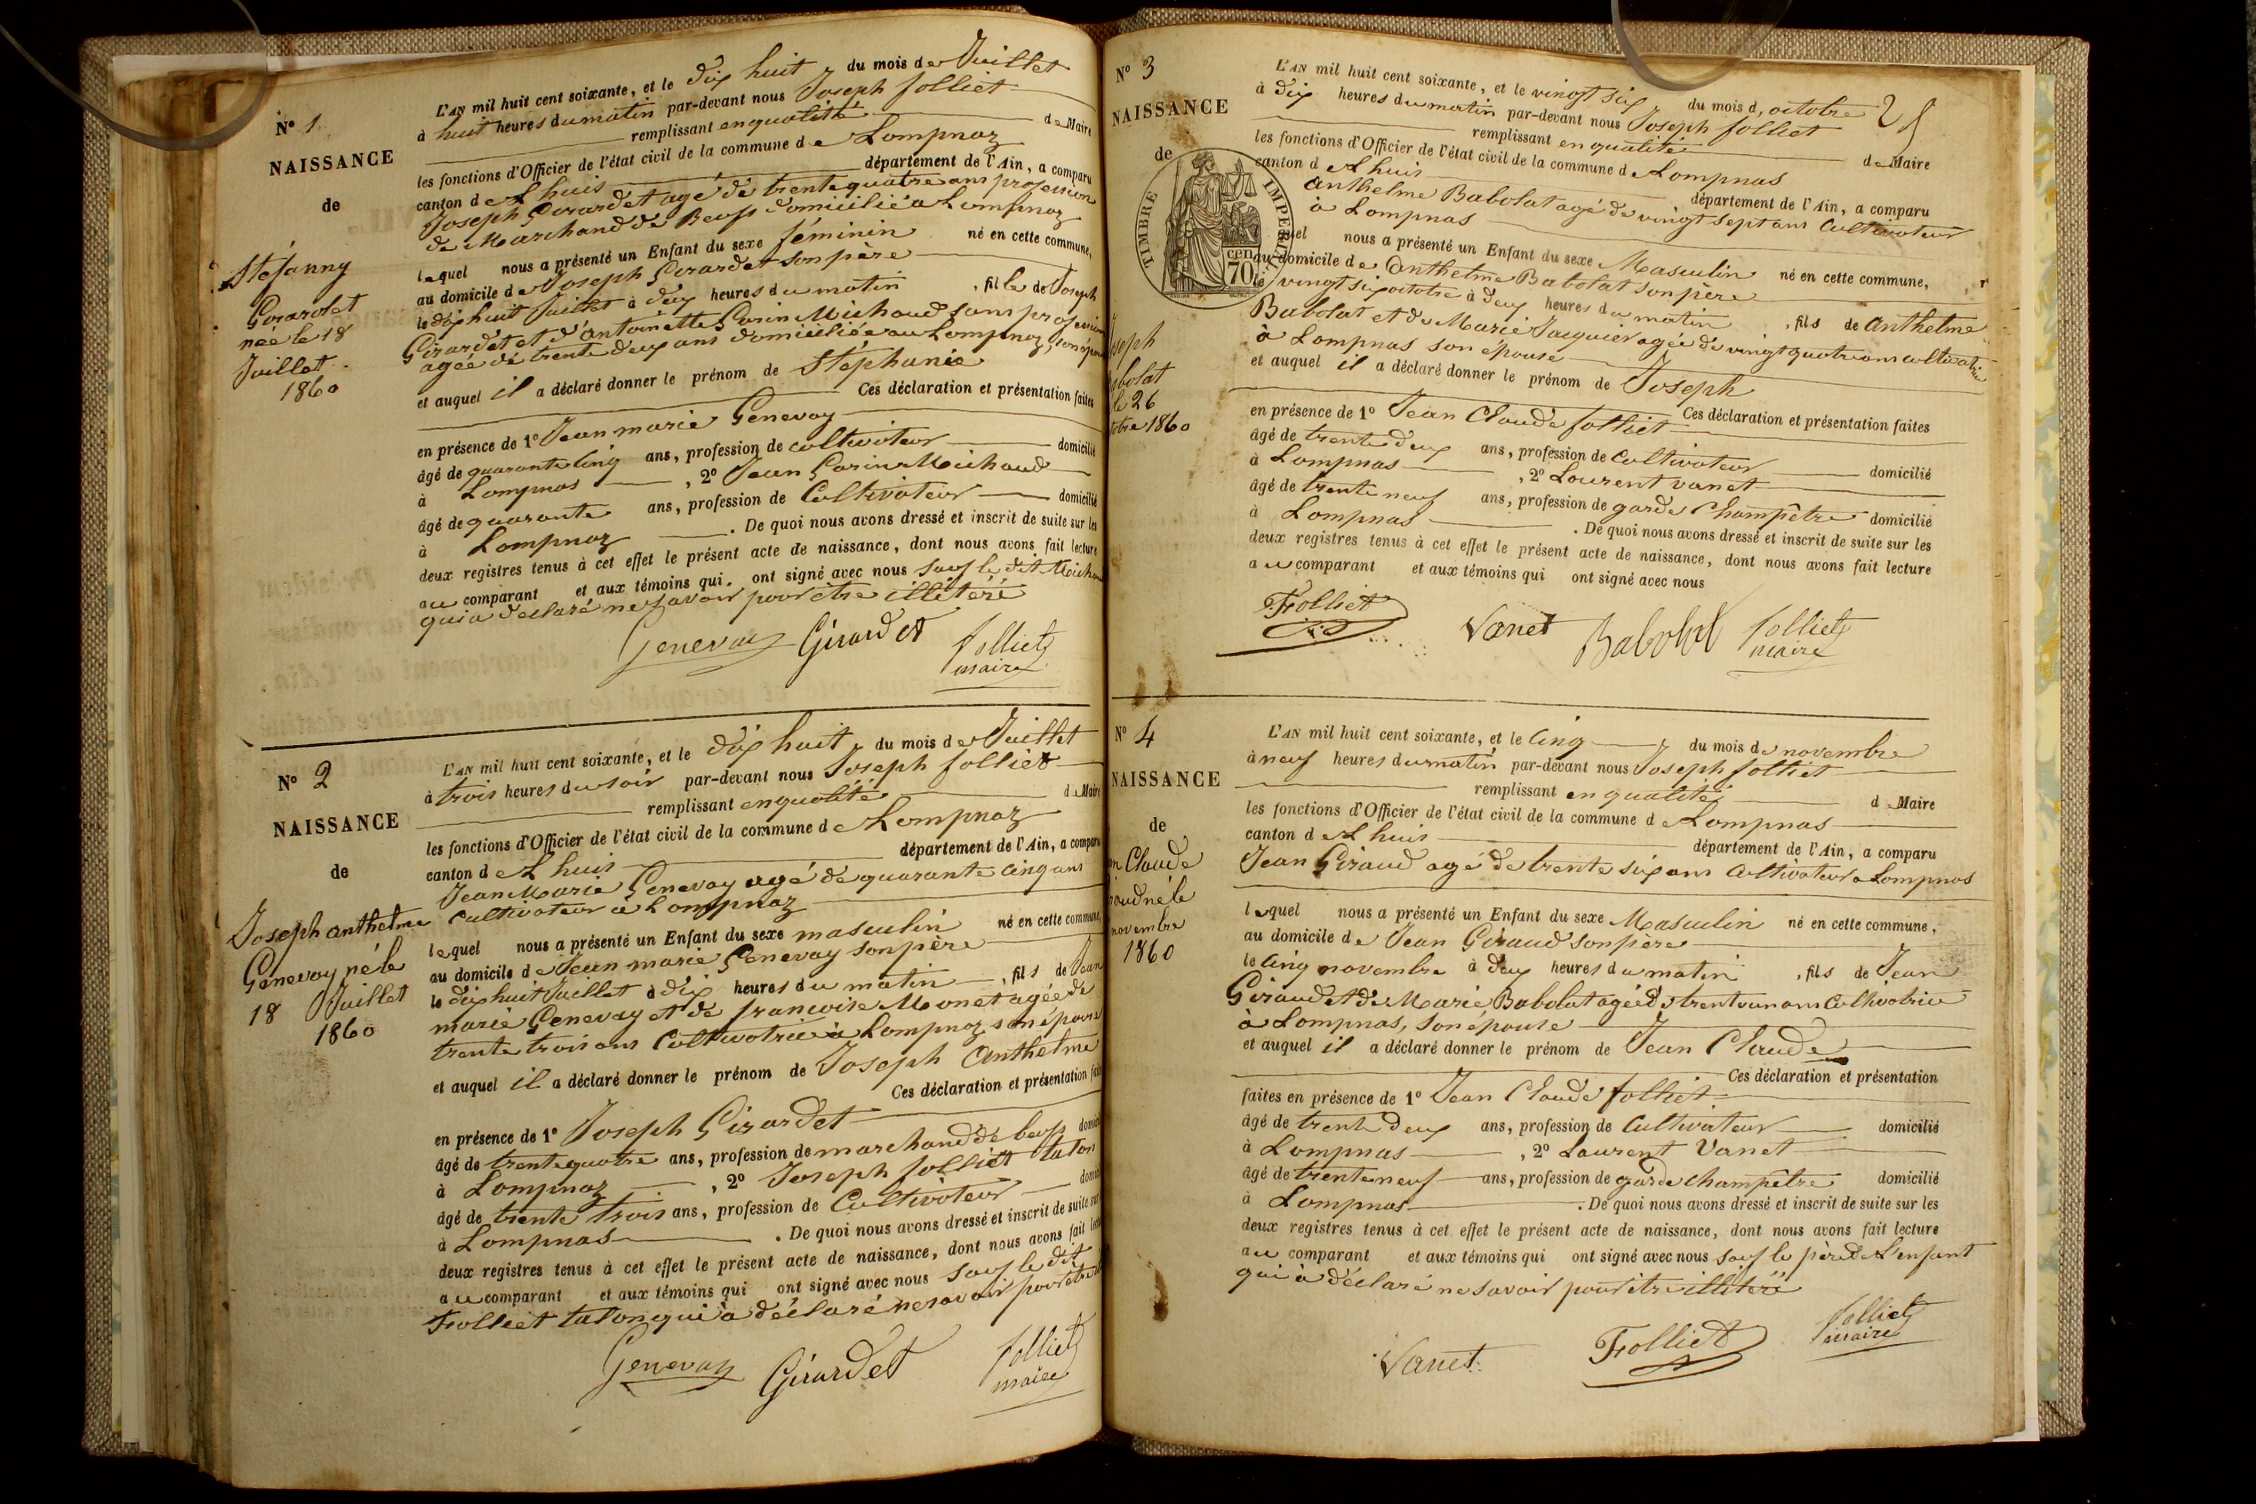 N° 1
NAISSANCE
de
Stéfanny
Girardet
née le 18
Juillet
1860
L'AN mil huit cent soixante, et le dix huit du mois de Juillet
à huit heures du matin par-devant nous Joseph folliet
remplissant en qualité de Maire
les fonctions d'Officier de l'état civil de la commune de Lompnaz
canton de Lhuis département de l'Ain, a comparu
Joseph Girardet agé de trente quatre ans profession
de Marchand de Beufs domicilié à Lompnaz
lequel nous a présenté un Enfant du sexe féminin né en cette commune,
au domicile de Joseph Girardet son père
le dix huit Juillet à deux heures du matin , fille de Joseph
Girardet et d'antoinette Gorin Michaud sans profession
agée de trente deux ans domiciliée au Lompnaz, son épouse
et auquel il a déclaré donner le prénom de Stéphanie
Ces déclaration et présentation faites
en présence de 1° Jean marie Genevay
âgé de quarante cinq ans, profession de cultivateur domicilié
à Lompnas , 2° Jean Gorin Michaud
âgé de quarante ans, profession de Cultivateur domicilié
à Lompnaz . De quoi nous avons dressé et inscrit de suite sur les
deux registres tenus à cet effet le présent acte de naissance, dont nous avons fait lecture
au comparant et aux témoins qui ont signé avec nous sauf le dit Michaud
qui a déclaré ne savoir pour être illitéré
Genevay Girardet folliet
maire
N° 2
NAISSANCE
de
Joseph anthelme
Genevay né le
18 Juillet
1860
L'AN mil huit cent soixante, et le dix huit du mois de Juillet
à trois heures du soir par-devant nous Joseph folliet
remplissant en qualité de Maire
les fonctions d'Officier de l'état civil de la commune de Lompnaz
canton de Lhuis département de l'Ain, a comparu
Jean Marie Genevay agé de quarante cinq ans
Cultivateur à Lompnaz
lequel nous a présenté un Enfant du sexe masculin né en cette commune,
au domicile de Jean marie Genevay son père
le dix huit Juillet à dix heures du matin , fils de Jean
marie Genevay et de francoise Monet agée de
trente trois ans Cultivatrice à Lompnaz son épouse
et auquel il a déclaré donner le prénom de Joseph Anthelme
Ces déclaration et présentation fait
en présence de 1° Joseph Girardet
âgé de trente quatre ans, profession de marchand de beufs domici
à Lompnaz , 2° Joseph folliet talon
âgé de trente trois ans, profession de Cultivateur domici
à Lompnas . De quoi nous avons dressé et inscrit de suite sur
deux registres tenus à cet effet le présent acte de naissance, dont nous avons fait lect
au comparant et aux témoins qui ont signé avec nous sauf le dit
Folliet talon qui à déclaré ne savoir pour être
Genevay Girardet folliet
maire
N° 3
NAISSANCE
de
TIMBRE IMPERIAL
70
oseph
abolat
le 26
tobre 1860
25
L'AN mil huit cent soixante, et le vingt six du mois d, octobre
à dix heures du matin par-devant nous Joseph folliet
remplissant en qualité de Maire
les fonctions d'Officier de l'état civil de la commune de Lompnas
canton de Lhuis département de l'Ain, a comparu
Anthelme Babolat agé de vingt sept ans Cultivateur
à Lompnas
quel nous a présenté un Enfant du sexe Masculin né en cette commune,
au domicile de Anthelme Babolat son père
le vingt six octobre à deux heures du matin , fils de anthelme
Babolat et de Marie Jacquier agée de vingt quatre ans cultivatrice
à Lompnas son épouse
et auquel il a déclaré donner le prénom de Joseph
Ces déclaration et présentation faites
en présence de 1° Jean Claude folliet
âgé de trente deux ans, profession de Cultivateur domicilié
à Lompnas , 2° Laurent vanet
âgé de trente neuf ans, profession de garde Champêtre domicilié
à Lompnas . De quoi nous avons dressé et inscrit de suite sur les
deux registres tenus à cet effet le présent acte de naissance, dont nous avons fait lecture
au comparant et aux témoins qui ont signé avec nous
Folliet Vanet Babolat folliet
maire
N° 4
NAISSANCE
de
an Claude
raud né le
novembre
1860
L'AN mil huit cent soixante, et le Cinq du mois de novembre
à neuf heures du matin par-devant nous Joseph folliet
remplissant en qualité de Maire
les fonctions d'Officier de l'état civil de la commune de Lompnas
canton de Lhuis département de l'Ain, a comparu
Jean Giraud agé de trente six ans Cultivateur a Lompnas
lequel nous a présenté un Enfant du sexe Masculin né en cette commune,
au domicile de Jean Giraud son père
le Cinq novembre à deux heures du matin , fils de Jean
Giraud et de Marie Babolat agée de trente un ans Cultivatrice
à Lompnas, son épouse
et auquel il a déclaré donner le prénom de Jean Claude
Ces déclaration et présentation
faites en présence de 1° Jean Claude folliet
âgé de trente deux ans, profession de Cultivateur domicilié
à Lompnas , 2° Laurent Vanet
âgé de trente neuf ans, profession de garde champêtre domicilié
à Lompnas . De quoi nous avons dressé et inscrit de suite sur les
deux registres tenus à cet effet le présent acte de naissance, dont nous avons fait lecture
au comparant et aux témoins qui ont signé avec nous sauf le père de L'enfant
qui à déclaré ne savoir pour être illitéré
Vanet Folliet folliet
maire